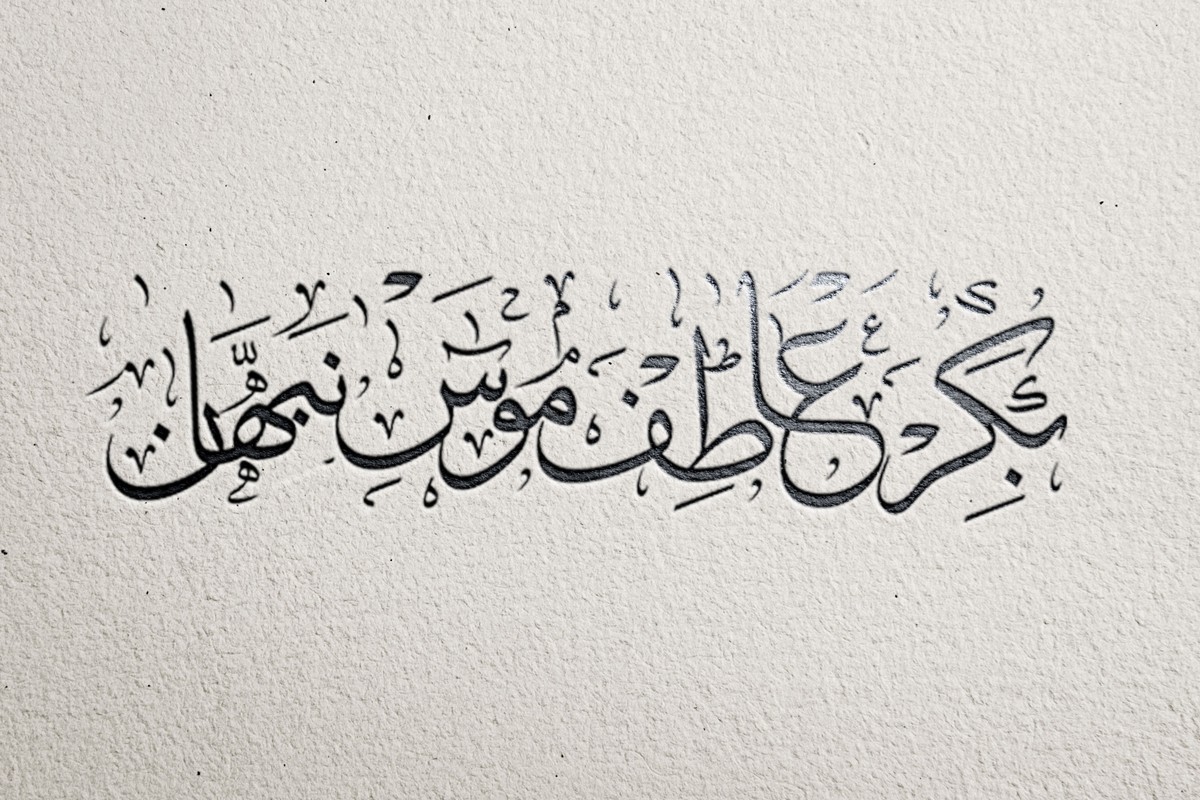 بكرى عاطف موسى نبهان